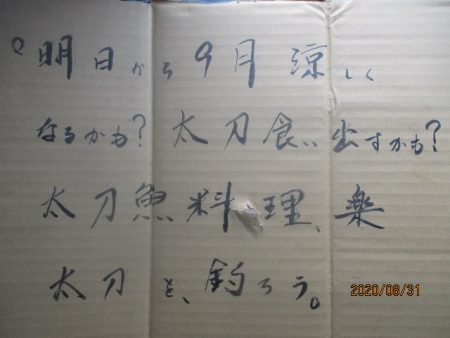 °明日から9月涼しく
なるかも?太刀食い出すかも?
太刀魚料理、楽
太刀を、釣ろう。
2020/08/31